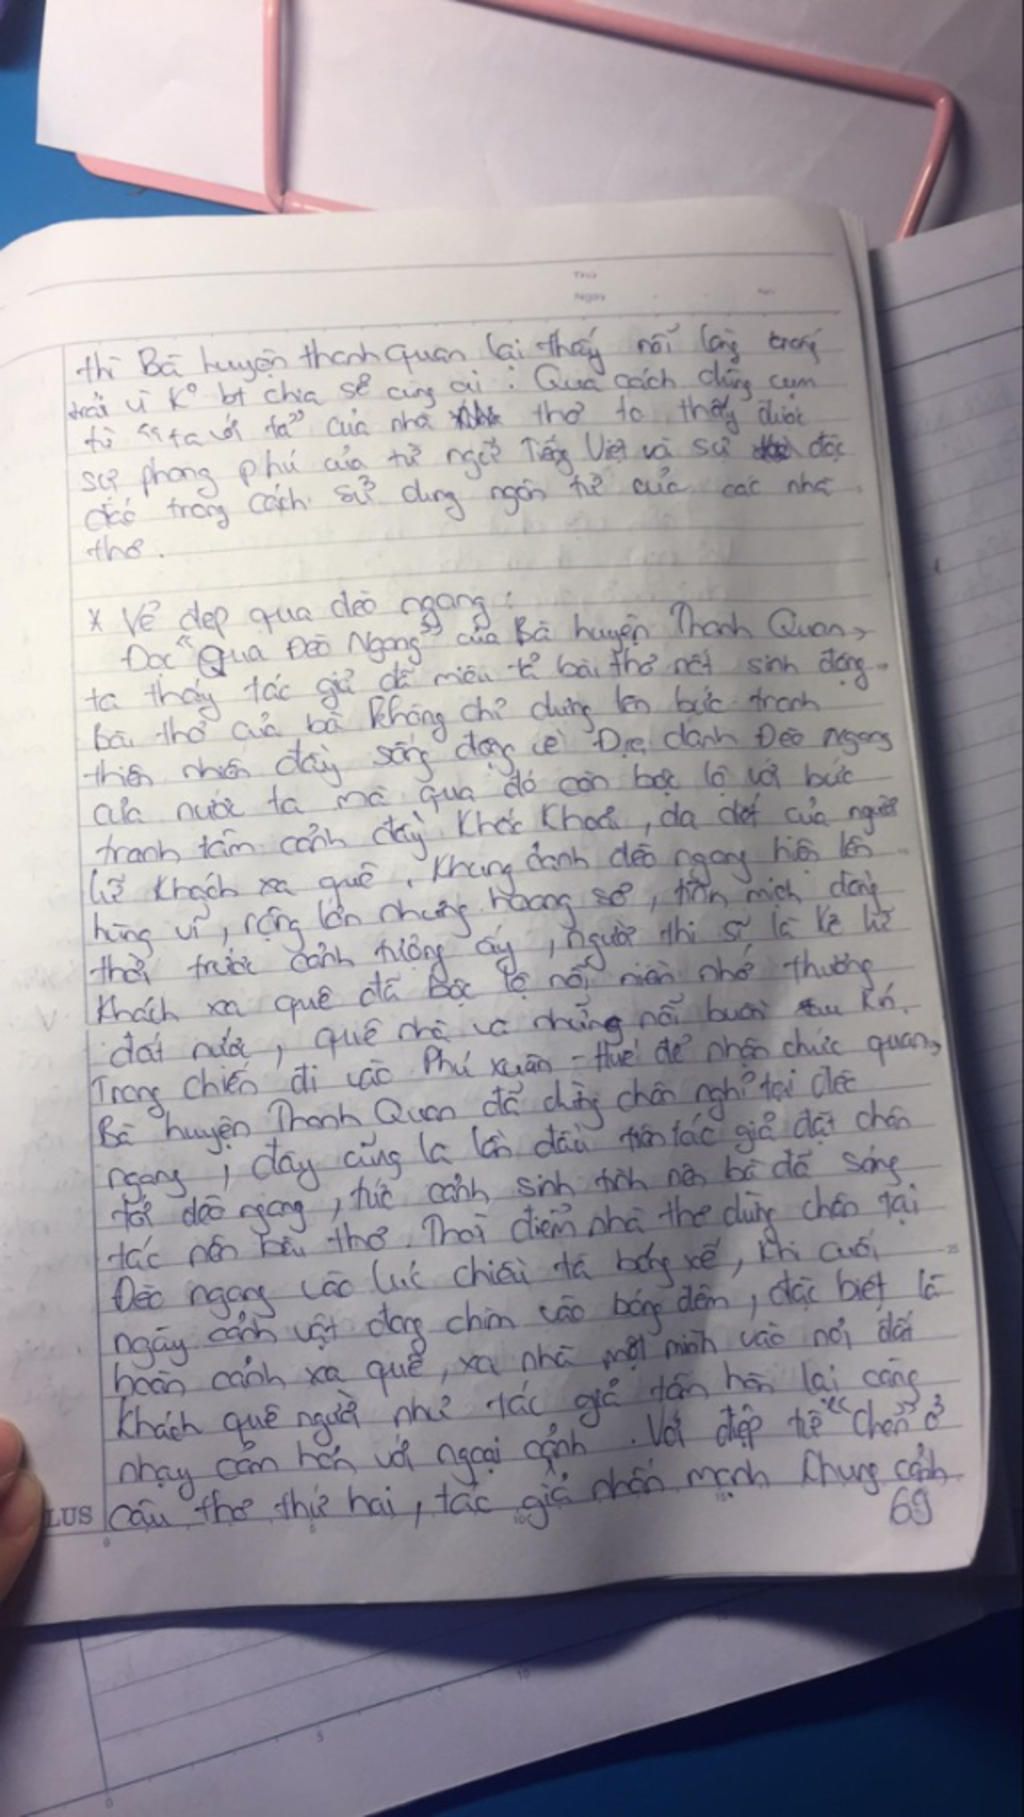 Thứ
Ngày
thì Bà huyện thanh Quan lại thấy nỗi lòng trống
trải vì K° bt chia sẻ cùng ai. Qua cách dùng cụm
từ "ta với ta" của nhà thơ ta thấy được
sự phong phú của từ ngữ Tiếng Việt và sự độc
đáo trong cách sử dụng ngôn từ của các nhà
thơ.
* Vẻ đẹp qua đèo ngang:
Đọc "Qua Đèo Ngang" của Bà huyện Thanh Quan,
ta thấy tác giả đã miêu tả bài thơ nét sinh động.
Bài thơ của bà không chỉ dựng lên bức tranh
thiên nhiên đầy sống động về Địa danh Đèo ngang
của nước ta mà qua đó còn bộc lộ với bức
tranh tâm cảnh đầy Khắc Khoải, da diết của người
lữ Khách xa quê. Khung cảnh đèo ngang hiện lên
hùng vĩ, rộng lớn nhưng hoang sơ, tĩnh mịch đồng
thời trước cảnh tượng ấy, người thi sĩ là kẻ lữ
Khách xa quê đã bộc lộ nỗi niềm nhớ thương
đất nước, quê nhà và những nỗi buồn kín.
Trong chiến đi vào Phú xuân - Huế để nhận chức quan,
Bà huyện Thanh Quan đã dừng chân nghỉ tại đèo
ngang, đây cũng là lần đầu tiên tác giả đặt chân
tới đèo ngang, tức cảnh sinh tình nên bà đã sáng
tác nên bài thơ. Thời điểm nhà thơ dừng chân tại
Đèo ngang vào lúc chiều tà bóng xế, khi cuối
ngày cảnh vật đang chìm vào bóng đêm, đặc biệt là
hoàn cảnh xa quê, xa nhà một mình vào nơi đất
khách quê người như tác giả tâm hồn lại càng
nhạy cảm hơn với ngoại cảnh. Với điệp từ "chen" ở
LUS câu thơ thứ hai, tác giả nhấn mạnh khung cảnh
69